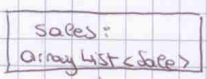 sales:
arrayList<Sale>